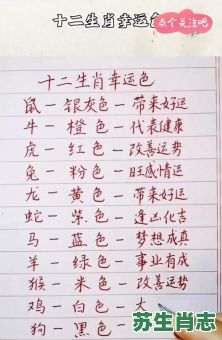 十二生肖幸运色
点个关注吧
十二生肖幸运色
鼠－银灰色－带来好运
牛－橙色－代表健康
虎－红色－改善运势
兔－粉色－旺感情运
龙－黄色－带来好运
蛇－紫色－逢凶化吉
马－蓝色－梦想成真
羊－绿色－事业有成
猴－米色－改善运势
鸡－白色－大
狗－黑色－
苏生肖志